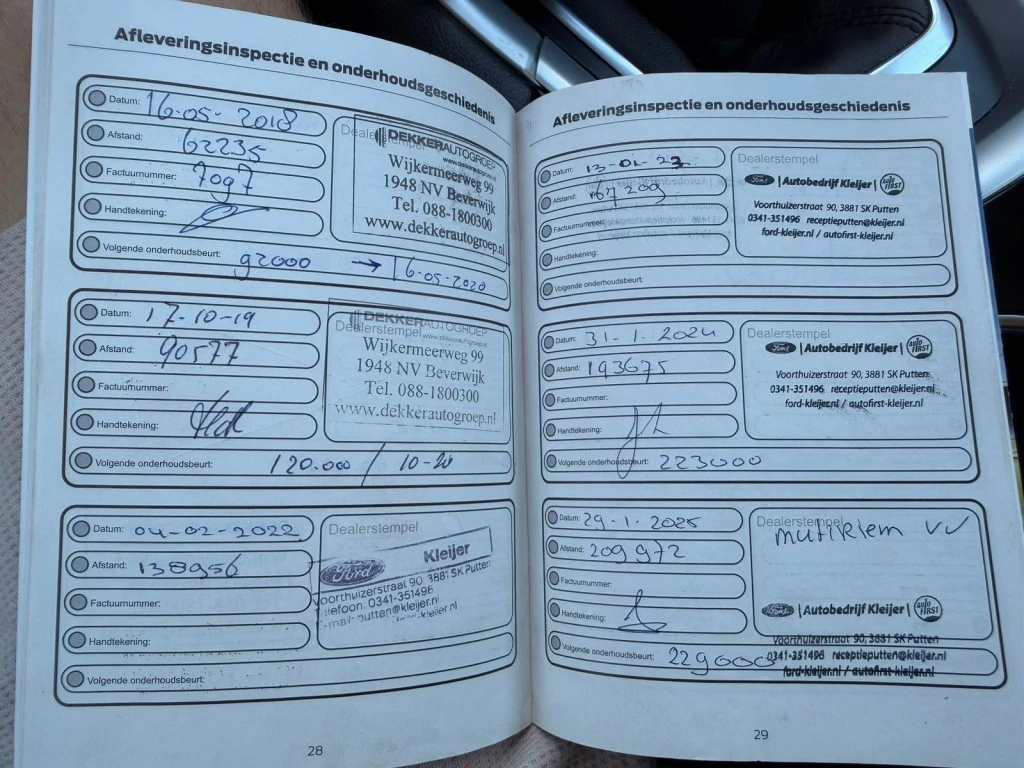 Afleveringsinspectie en onderhoudsgeschiedenis
Datum: 16-05-2018
Afstand: 62235
Factuurnummer: 7097
Handtekening:
Volgende onderhoudsbeurt: 92000 → 16-05-2020
Dealerstempel
DEKKERAUTOGROEP
www.dekkerautogroep.nl
Wijkermeerweg 99
1948 NV Beverwijk
Tel. 088-1800300
www.dekkerautogroep.nl
Datum: 17-10-19
Afstand: 90577
Factuurnummer:
Handtekening:
Volgende onderhoudsbeurt: 120.000 / 10-20
Dealerstempel
DEKKERAUTOGROEP
www.dekkerautogroep.nl
Wijkermeerweg 99
1948 NV Beverwijk
Tel. 088-1800300
www.dekkerautogroep.nl
Datum: 04-02-2022
Afstand: 138956
Factuurnummer:
Handtekening:
Volgende onderhoudsbeurt:
Dealerstempel
Ford Kleijer
Voorthuizerstraat 90, 3881 SK Putten
Telefoon: 0341-351496
E-mail: putten@kleijer.nl
28
Afleveringsinspectie en onderhoudsgeschiedenis
Datum: 13-01-23
Afstand: 167 209
Factuurnummer:
Handtekening:
Volgende onderhoudsbeurt:
Dealerstempel
Ford | Autobedrijf Kleijer | auto FIRST
Voorthuizerstraat 90, 3881 SK Putten
0341-351496 receptieputten@kleijer.nl
ford-kleijer.nl / autofirst-kleijer.nl
Datum: 31-1-2024
Afstand: 193675
Factuurnummer:
Handtekening:
Volgende onderhoudsbeurt: 223000
Dealerstempel
Ford | Autobedrijf Kleijer | auto FIRST
Voorthuizerstraat 90, 3881 SK Putten
0341-351496 receptieputten@kleijer.nl
ford-kleijer.nl / autofirst-kleijer.nl
Datum: 29-1-2025
Afstand: 209972
Factuurnummer:
Handtekening:
Volgende onderhoudsbeurt: 229000
Dealerstempel
multiklem vv
Ford | Autobedrijf Kleijer | auto FIRST
Voorthuizerstraat 90, 3881 SK Putten
0341-351496 receptieputten@kleijer.nl
ford-kleijer.nl / autofirst-kleijer.nl
29